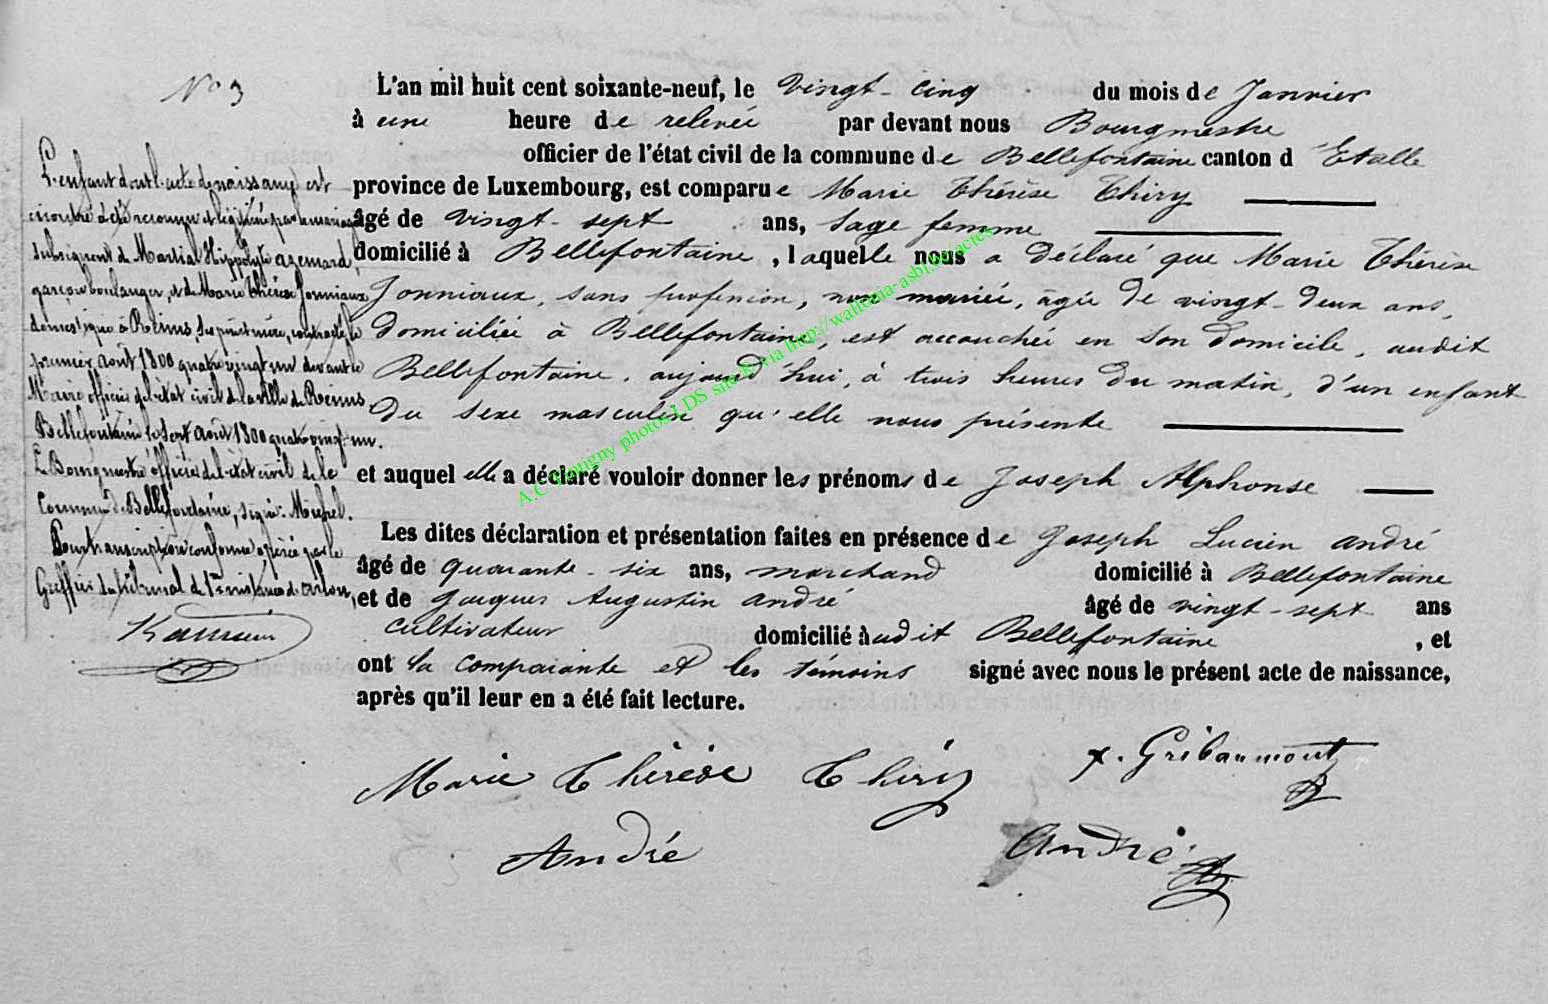 N° 3
L'an mil huit cent soixante-neuf, le vingt-cinq du mois de Janvier
à une heure de relevée par devant nous Bourgmestre
officier de l'état civil de la commune de Bellefontaine canton d'Etalle
province de Luxembourg, est comparue Marie Thérèse Thiry
âgé de vingt-sept ans, sage femme
domicilié à Bellefontaine, laquelle nous a déclaré que Marie Thérèse
Jonniaux, sans profession, non mariée, âgée de vingt-deux ans,
domiciliée à Bellefontaine, est accouchée en son domicile, audit
Bellefontaine, aujourd'hui, à trois heures du matin, d'un enfant
du sexe masculin qu'elle nous présente
et auquel elle a déclaré vouloir donner les prénoms de Joseph Alphonse
Les dites déclaration et présentation faites en présence de Joseph Lucien André
âgé de quarante-six ans, marchand domicilié à Bellefontaine
et de Jacques Augustin André âgé de vingt-sept ans
cultivateur domicilié à audit Bellefontaine, et
ont la comparante et les témoins signé avec nous le présent acte de naissance,
après qu'il leur en a été fait lecture.
Marie Thérèse Thiry
Gribaumont
André
André
L'enfant dont l'acte de naissance est
ci contre a été reconnu et légitimé par le mariage
subséquent de Martial Hippolyte Azemard,
garçon boulanger, et de Marie Thérèse Jonniaux
domestique à Reims, ses père et mère, contracté le
premier août 1800 quatre vingt un devant le
Maire officier de l'état civil de la ville de Reims
Bellefontaine le sept août 1800 quatre vingt-un.
Le Bourgmestre officier de l'état civil de la
Commune de Bellefontaine, signé. Michel.
Pour transcription conforme opérée par le
Greffier du tribunal de 1re instance de Arlon,
A.C. photos LDS site © via http://wallonia-asbl.be/actes